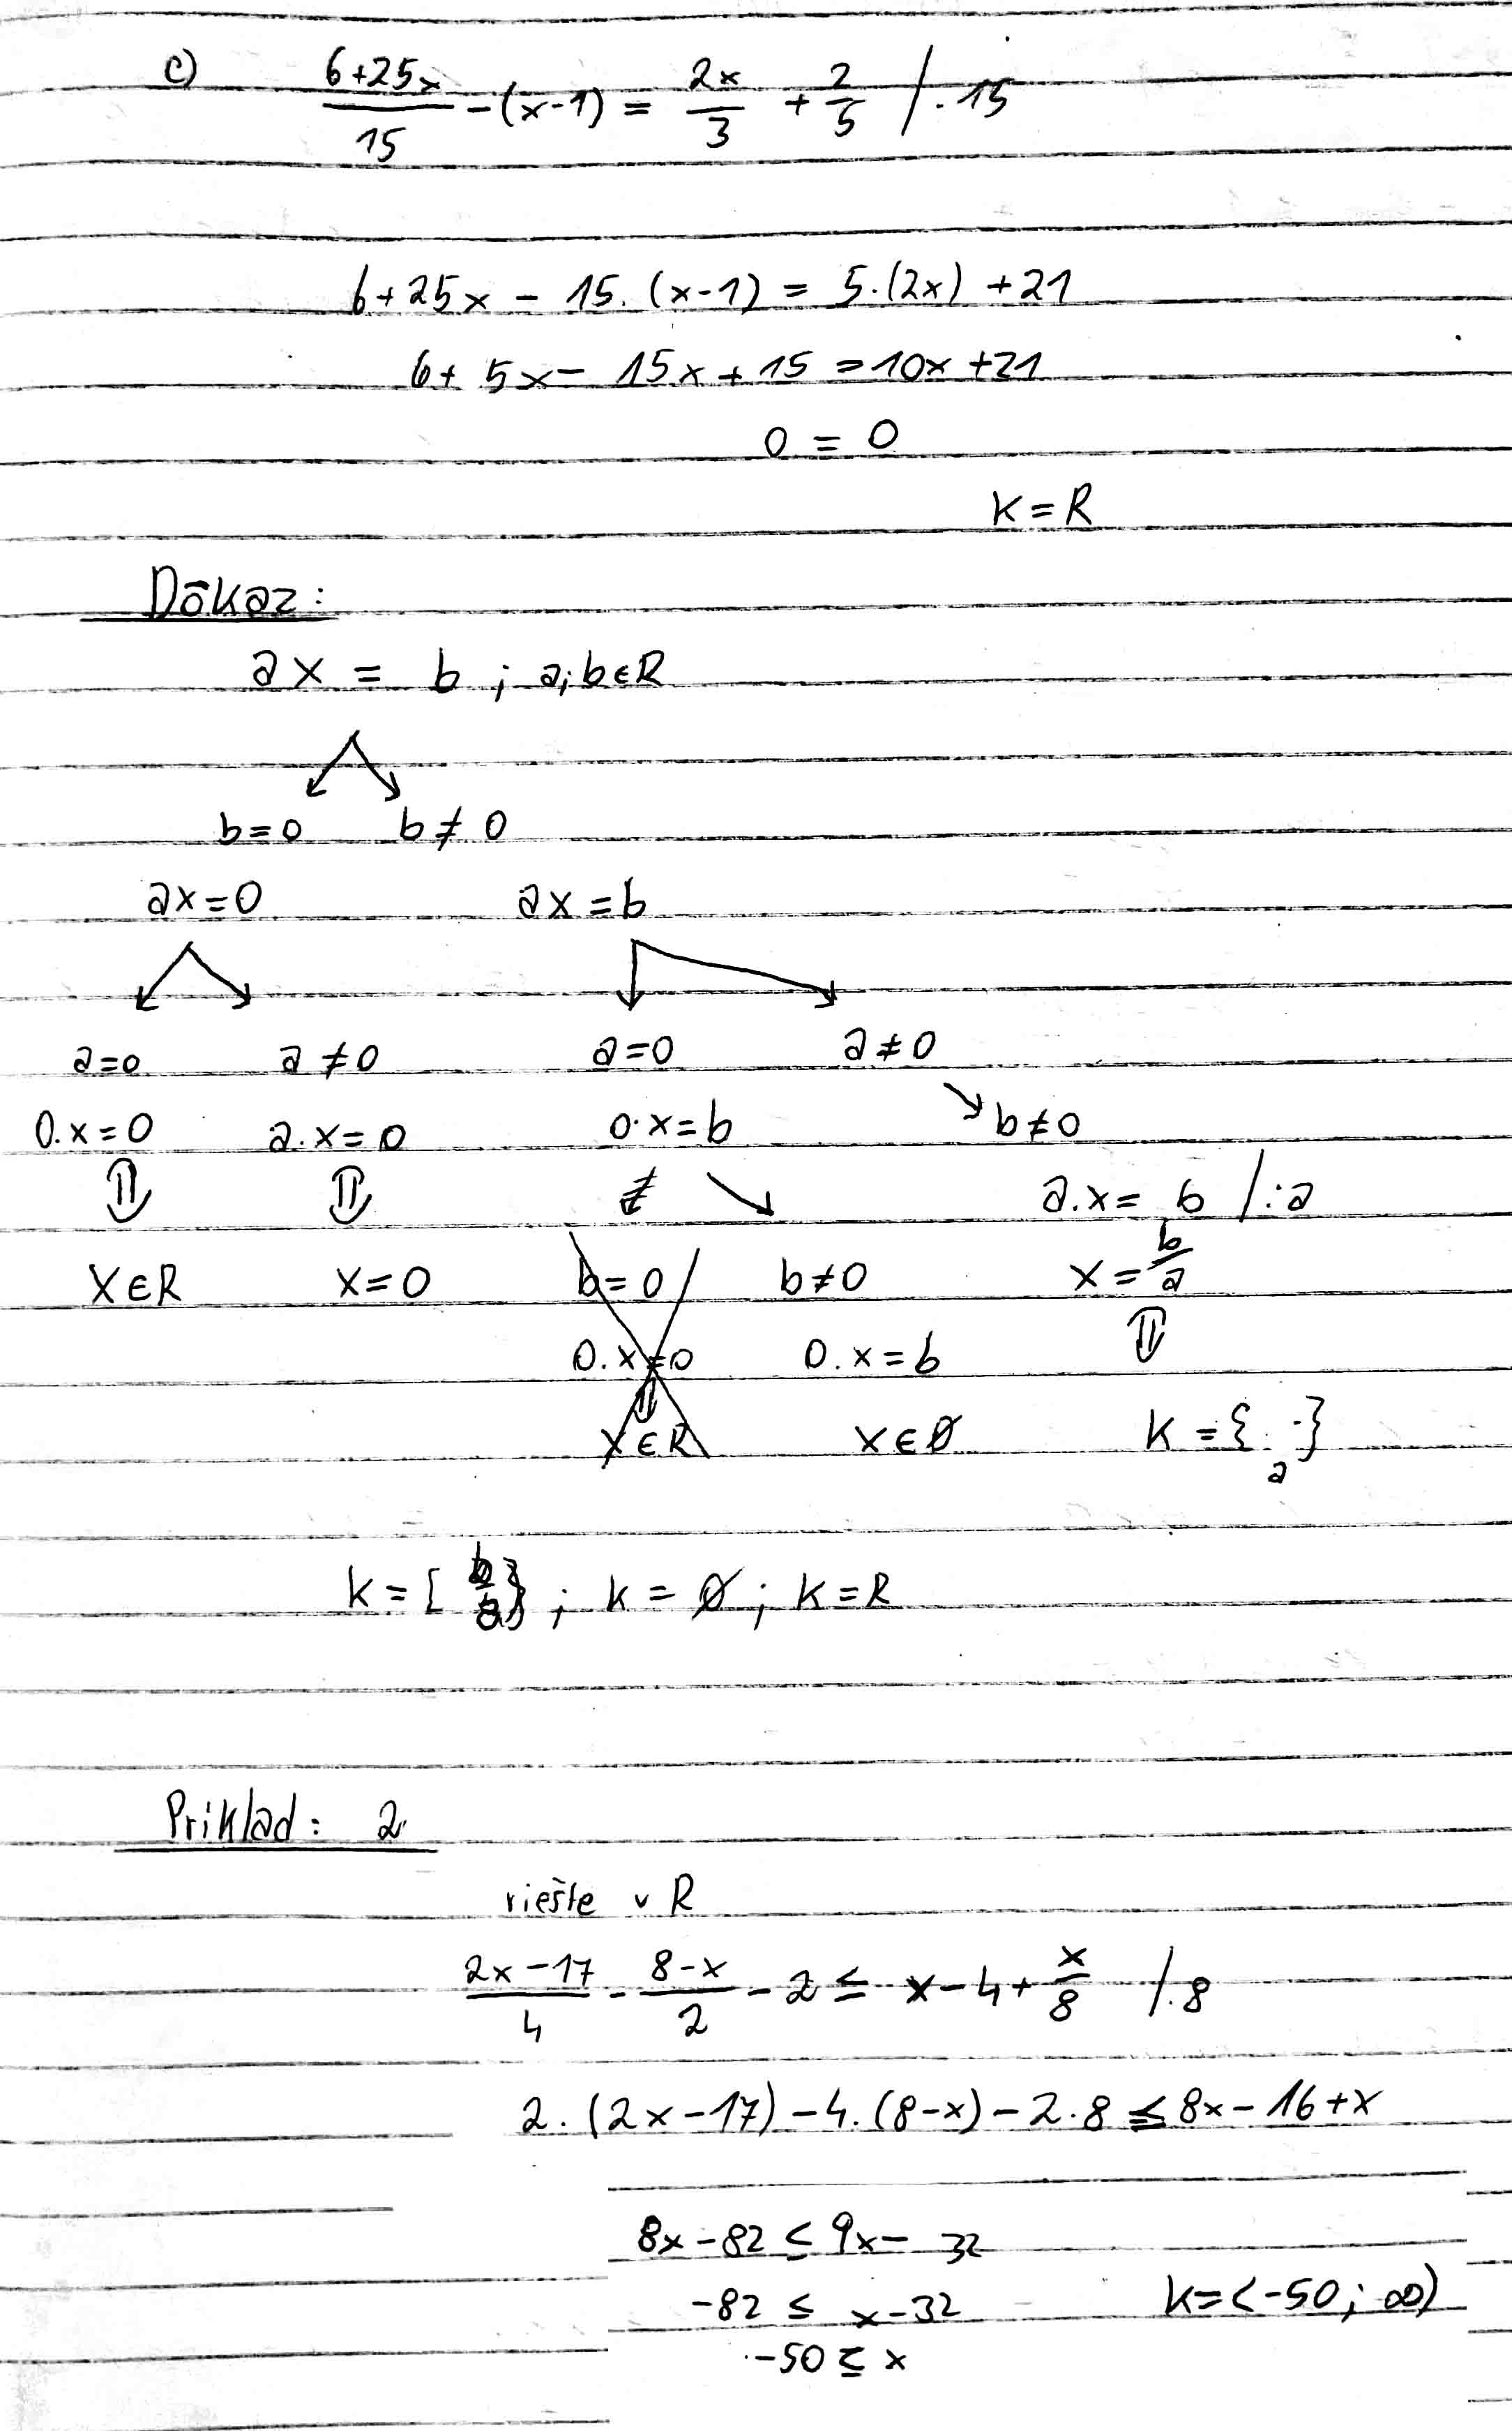 c) \frac{6+25x}{15} - (x-1) = \frac{2x}{3} + \frac{2}{5} /. 15
6+25x - 15. (x-1) = 5.(2x) +21
6+ 5x - 15x + 15 = 10x +21
0 = 0
K = R
Dōkaz:
ax = b ; a;b∈R
b=0 b≠0
ax=0 ax=b
a=0 a≠0 a=0 a≠0
0.x=0 a.x=0 0.x=b b≠0
⇓ ⇓ a.x= b /:a
x∈R x=0 b=0 b≠0 x=\frac{b}{a}
0.x=0 0.x=b ⇓
x∈R x∈∅ K={ a }
K=[\frac{b}{a}} ; K=∅ ; K=R
Priklad: 2.
riešte v R
\frac{2x-17}{4} - \frac{8-x}{2} - 2 ≤ x-4+\frac{x}{8} /.8
2.(2x-17)-4.(8-x)-2.8 ≤ 8x-16+x
8x-82 ≤ 9x- 32
-82 ≤ x-32 K=<-50; ∞)
-50 ≤ x